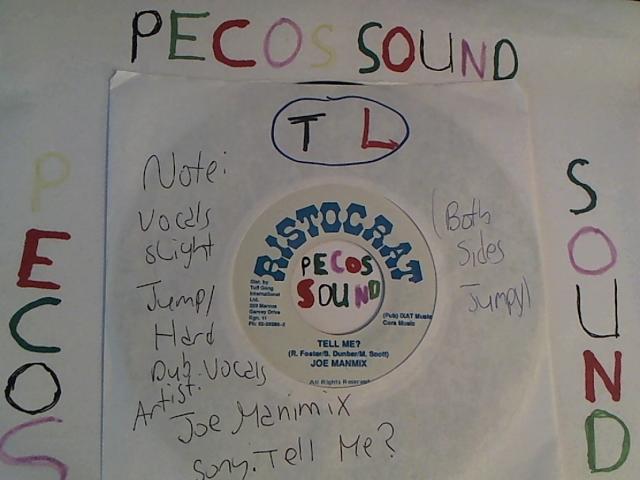 PECOS SOUND
T L
Note:
Vocals
slight
Jump/
Hard
Dub. Vocals
Artist:
Joe Manimix
Song: Tell Me?
(Both
Sides
Jumpy)
RISTOCRAT
PECOS
SOUND
Dist. by
Tuff Gong
International
Ltd.
Garvey Drive
Kgn. 11
(Pub) IXAT Music
Cora Music
TELL ME?
(R. Foster/S. Dunbar/M. Scott)
JOE MANMIX
All Rights Reserved
PECOS
SOUND